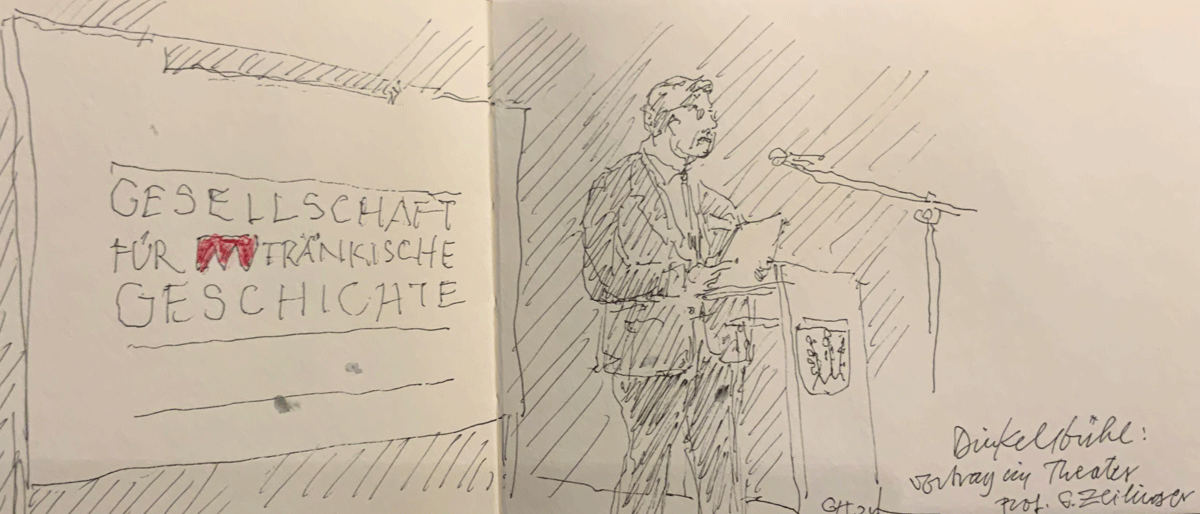 GESELLSCHAFT
FÜR FRÄNKISCHE
GESCHICHTE
Dinkelsbühl:
Vortrag im Theater
Prof. G. Zeilinger